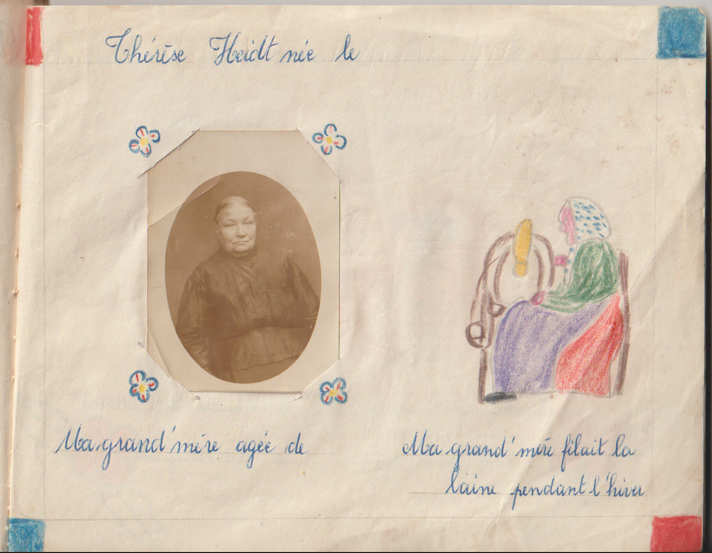 Thérèse Heidt née le
Ma grand'mère agée de
Ma grand'mère filait la
laine pendant l'hiver